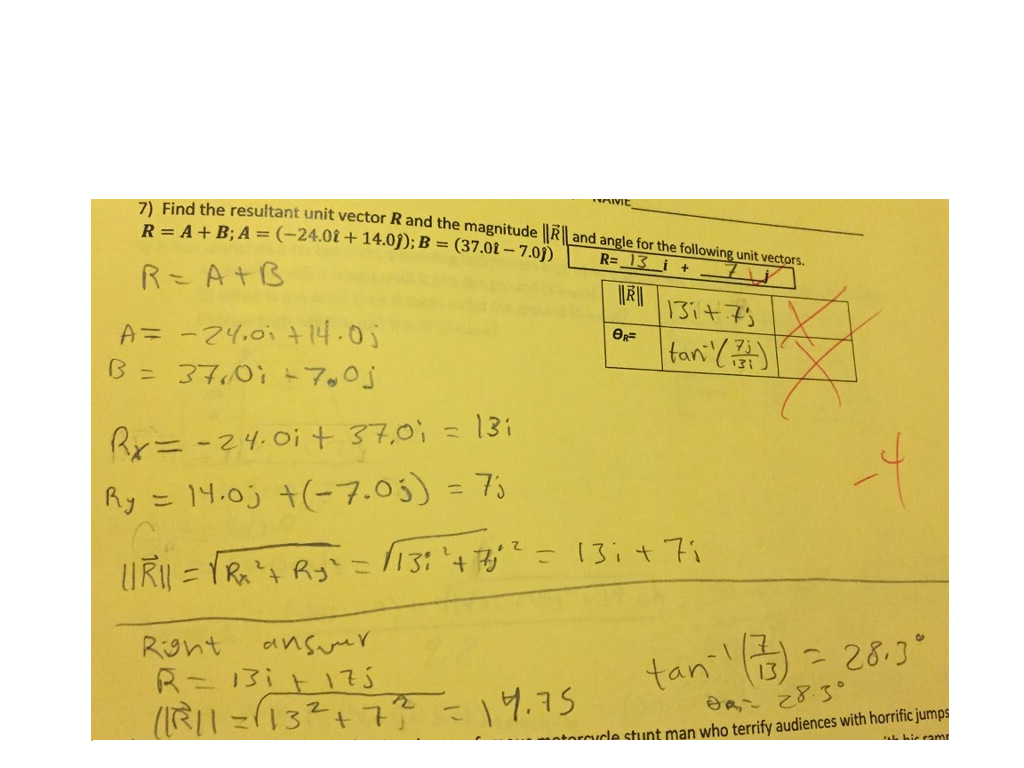 NAME
7) Find the resultant unit vector R and the magnitude ‖R⃗‖ and angle for the following unit vectors.
R = A + B; A = (−24.0î + 14.0ĵ); B = (37.0î − 7.0ĵ)
R= 13 i + 7 j
‖R⃗‖ 13i + 7j
θR= tan⁻¹(7j/13i)
R = A + B
A = −24.0i + 14.0j
B = 37.0i − 7.0j
Rx = −24.0i + 37.0i = 13i
Ry = 14.0j + (−7.0j) = 7j
−4
‖R⃗‖ = √Rx² + Ry² = √13i² + 7j² = 13i + 7i
Right answer
R = 13i + 17j
‖R⃗‖ = √13² + 7j² = 14.75
tan⁻¹(7/13) = 28.3°
θR = 28.3°
motorcycle stunt man who terrify audiences with horrific jumps
with his